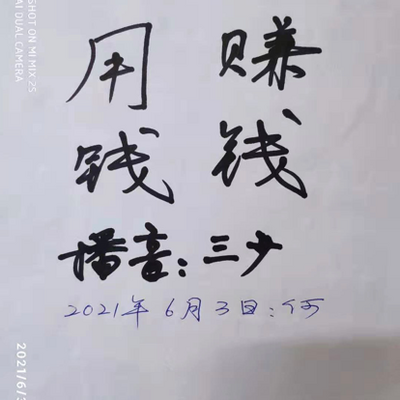 用 赚
钱 钱
播音:三少
2021年6月3日:何
SHOT ON MI MIX 2S
AI DUAL CAMERA
2021/6/3